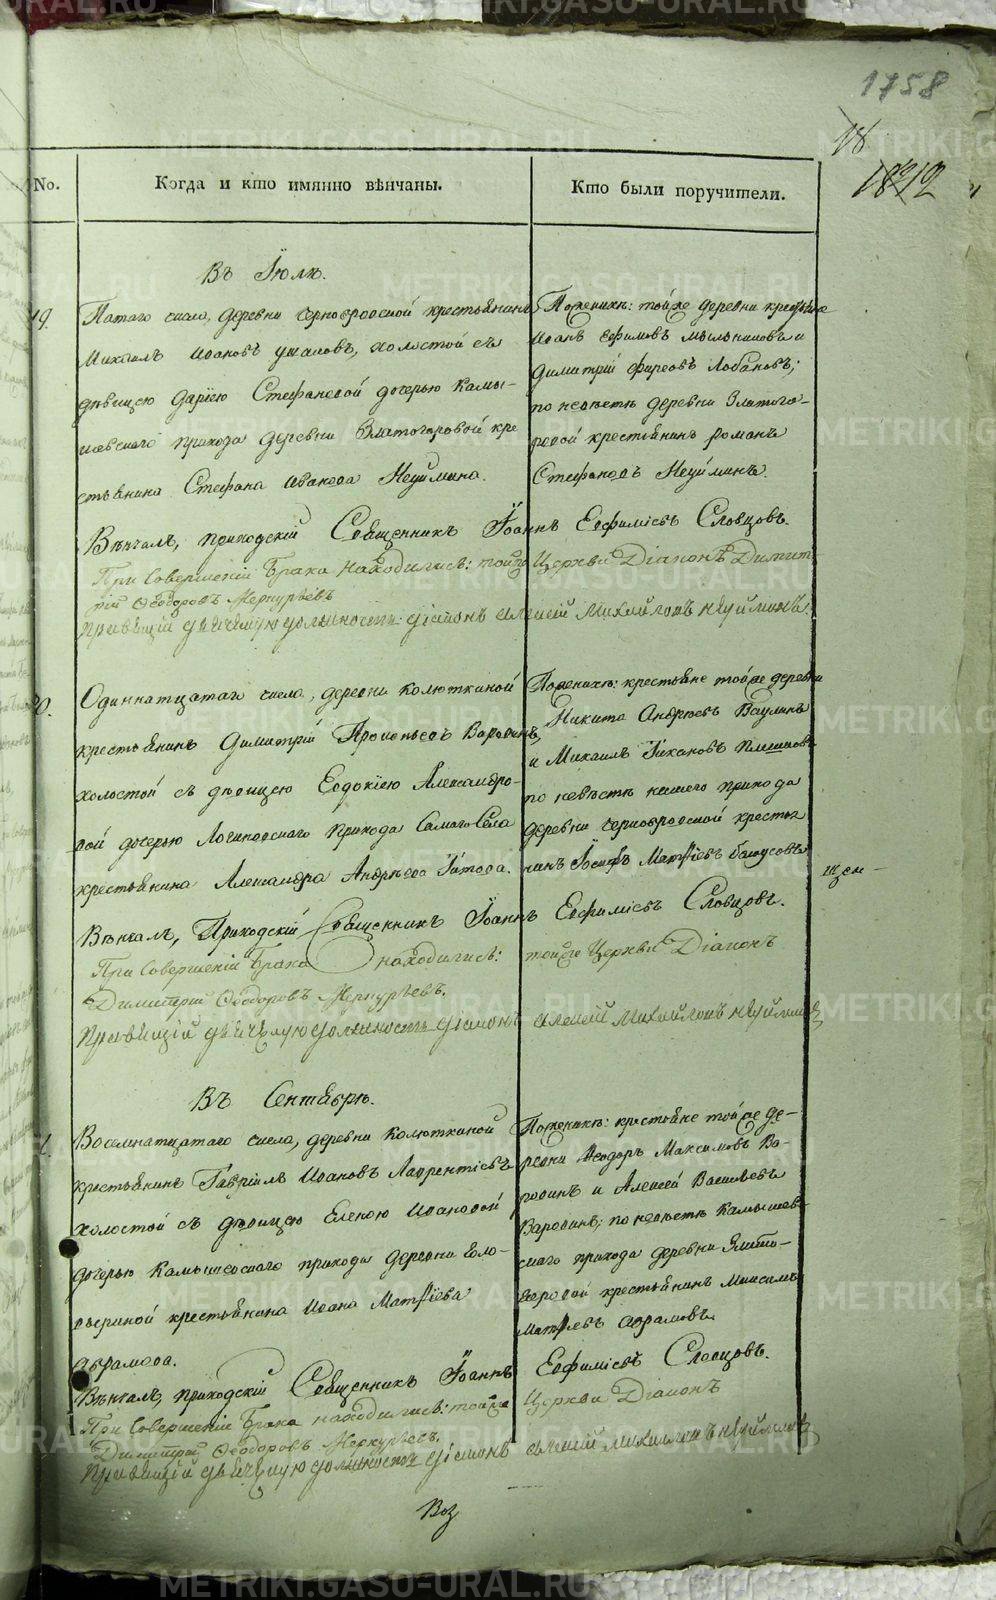 1758
18
No.
Когда и кто имянно вѣнчаны.
Кто были поручители.
Въ Іюлѣ.
19.
Пятаго числа, деревни Чернобровской крестьянинъ
Михаилъ Ивановъ Ушаковъ, холостой съ
дѣвицею Даріею Стефановой дочерью Камы-
шевскаго прихода деревни Златогоровой кре
стьянина Стефана Иванова Неуймина.
По женихѣ: тойже деревни крестьяне
Иванъ Ефимовъ Мыльниковъ и
Димитрій Фирсовъ Лобановъ;
по невѣстѣ деревни Златого-
ровой крестьянинъ Романъ
Стефановъ Неуйминъ.
Вѣнчалъ, приходскій Священникъ Іоаннъ Евфиміевъ Словцовъ.
При Совершеніи Брака находились: тойже Церкви Діаконъ Димит
рій Ѳеодоровъ Меркурьевъ
Правящій дьячечкую должность діаконъ Алексѣй Михайловъ Неуйминъ.
20.
Одиннатцатаго числа, деревни Колюткиной
крестьянинъ Димитрій Прокопьевъ Варовинъ,
холостой съ дѣвицею Евдокіею Александро-
вой дочерью Логиновскаго прихода Самаго Села
крестьянина Александра Андрѣева Титова.
По женихѣ: крестьяне тойже деревни
Никита Андрѣевъ Ваулинъ
и Михаилъ Тихановъ
по невѣстѣ нашего прихода
деревни Чернобровской крестья
нинъ Іосифъ Матѳіевъ Бѣлоусовъ
Вѣнчалъ, Приходскій Священникъ Іоаннъ Евфиміевъ Словцовъ.
При Совершеніи Брака находились: тойже Церкви Діаконъ
Димитрий Ѳеодоровъ Меркурьевъ.
Правящій дьячечкую должность діаконъ Алексѣй Михайловъ Неуйминъ
Въ Сентябрѣ.
Восемнатцатаго числа, деревни Колюткиной
крестьянинъ Гавріилъ Ивановъ Лаврентіевъ
холостой съ дѣвицею Еленою Ивановой
дочерью Камышевскаго прихода деревни Голо-
выриной крестьянина Ивана Матѳіева
Аврамова.
По женихѣ: крестьяне тойже де-
ревни Ѳеодоръ Максимовъ Ва-
ровинъ и Алексѣй Васильевъ
Варовинъ; по невѣстѣ Камышев-
скаго прихода деревни Злато-
горовой крестьянинъ Максимъ
Матѳѣевъ Аврамовъ.
Вѣнчалъ, приходскій Священникъ Іоаннъ Евфиміевъ Словцовъ.
При Совершеніи Брака находились: тойже Церкви Діаконъ
Димитрий Ѳеодоровъ Меркурьевъ.
Правящій дьячечкую должность діаконъ Алексѣй Михайловъ Неуйминъ
Воз
METRIKI.GASO-URAL.RU